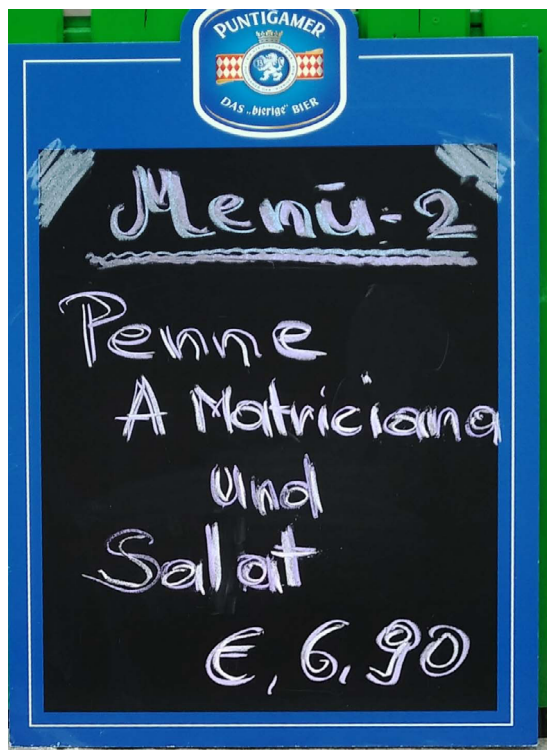 PUNTIGAMER
DAS „bierige" BIER
Menü-2
Penne
A Matriciana
und
Salat
€, 6,90